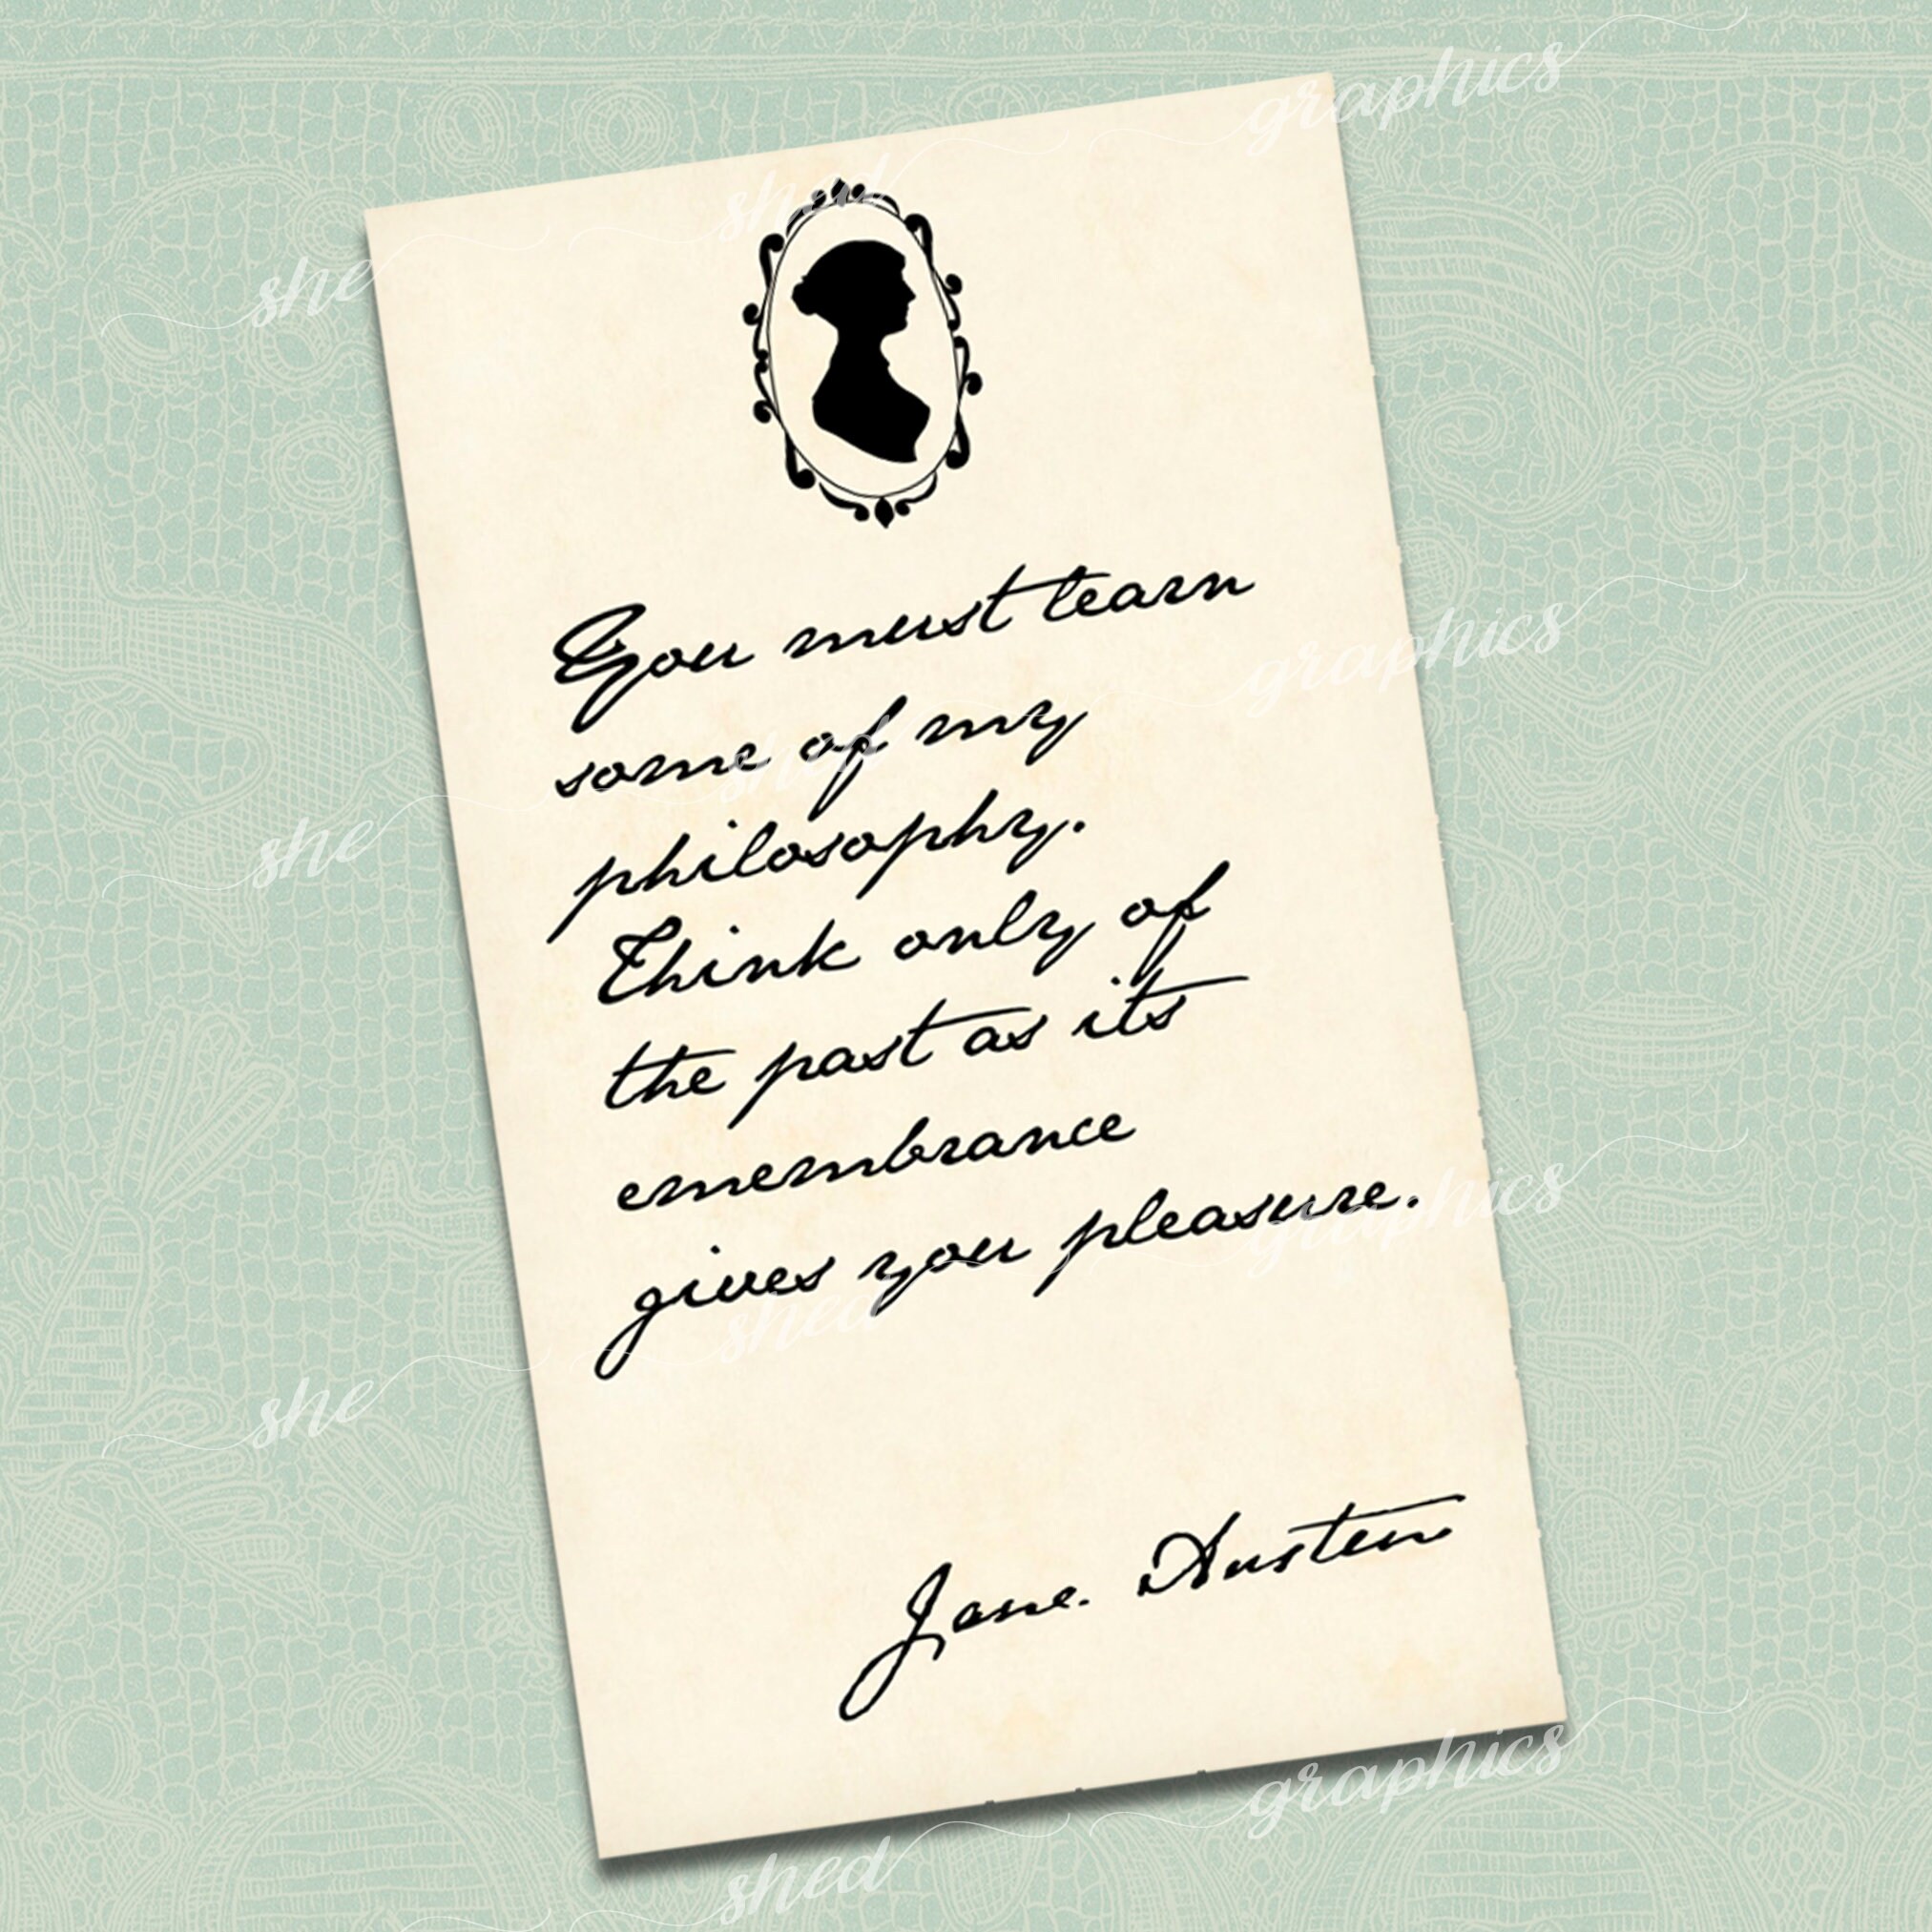 You must learn
some of my
philosophy.
Think only of
the past as its
emembrance
gives you pleasure.
Jane. Austen
she shed graphics
she shed graphics
she shed graphics
shed graphics